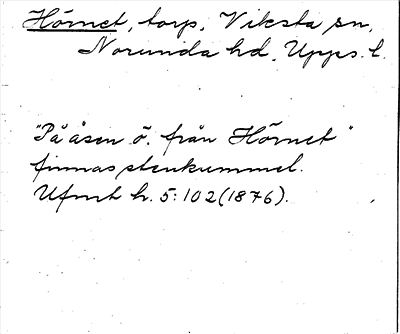 Hörnet, torp, Viksta sn,
Norunda hd, Upps. l.
"På åsen ö. från Hörnet"
finnas stenkummel.
Ufmt h. 5:102(1876).